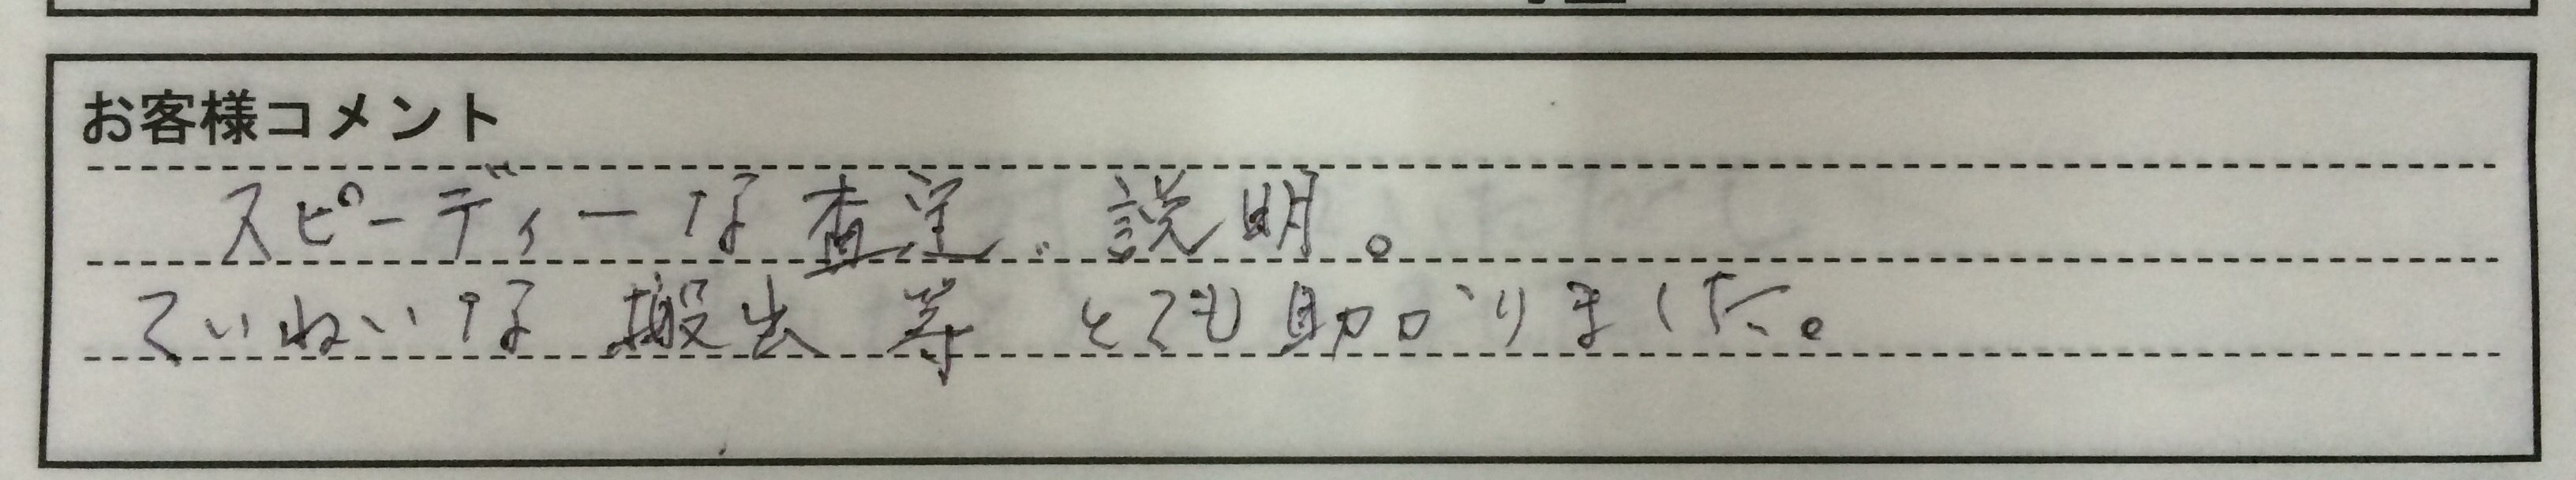 お客様コメント
スピーディーな査定、説明。
ていねいな搬出等 とても助かりました。